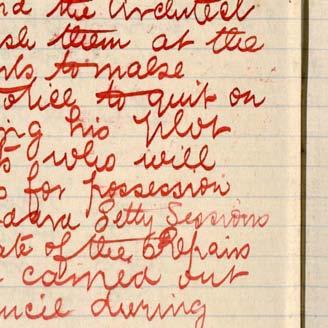 nd the Architect
sh them at the
to make
otice to quit on
ing his plot
s who will
s for possession
Petty Sessions
ate of the Repairs
carried out
uncil during